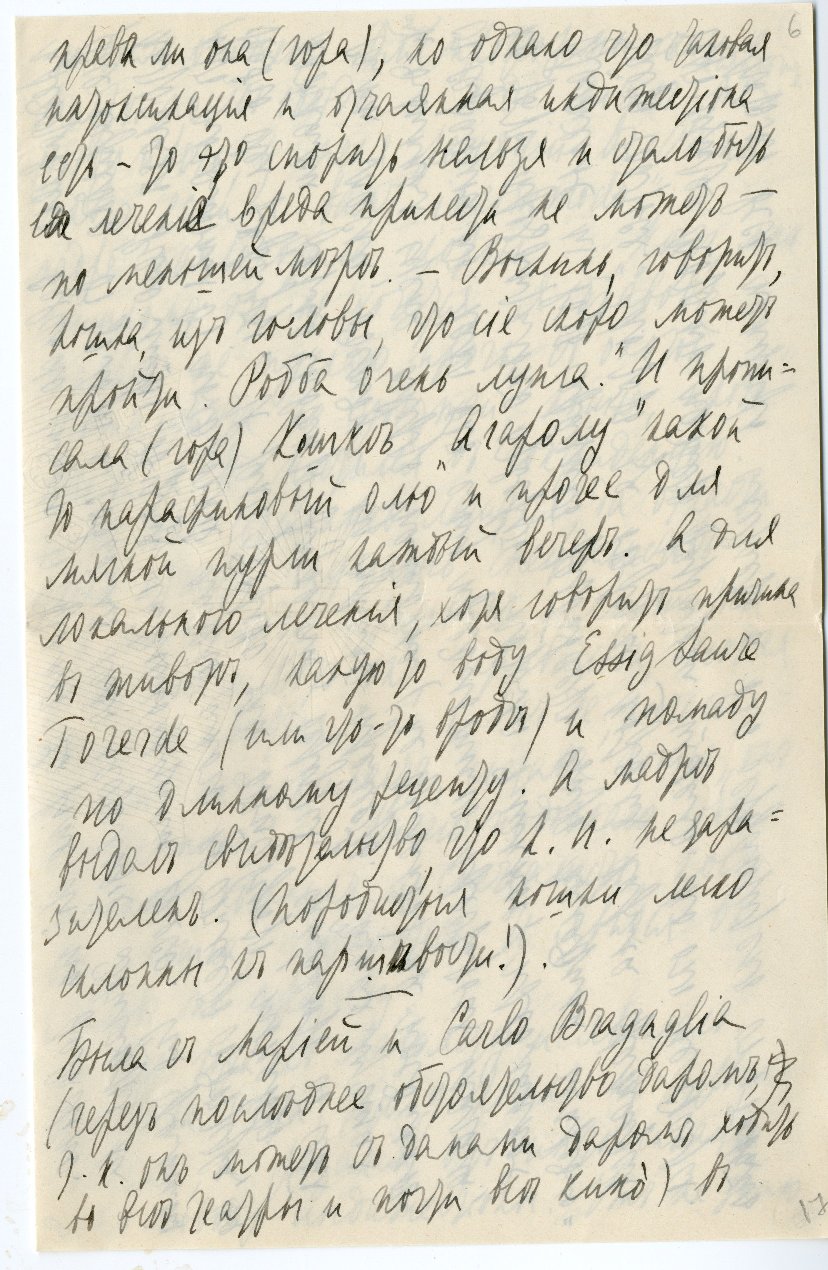 6
права ли она (гора), но однако что таковая
интоксикація и отчаянная индижестіона
есть – то это спорить нельзя и стало быть
ея леченіе вреда принести не можетъ —
по меньшей мѣрѣ. – Выкинь, говоритъ,
кошка, изъ головы, что сіе скоро можетъ
пройти. Робба очень лунга." И пропи=
сала (гора) Кошкѣ Агаролу "какой
то парафиновый оліо" и прочее для
мягкой пурги каждый вечеръ. А для
локальнаго леченія, хотя говоритъ причина
въ животѣ, какую то воду Essigsaure
Tonerde (или что-то вродѣ) и помаду
по длинному рецепту. А мадрѣ
выдалъ свидѣтельство, что к. н. не зара=
зителенъ. (Породистыя кошки легко
склонны къ паршивости!).
Была съ Маріей и Carlo Bragaglia
(черезъ послѣднее обстоятельство даромъ,
т. к. онъ можетъ съ дамами даромъ ходить
во всѣ театры и почти всѣ кино) въ
17